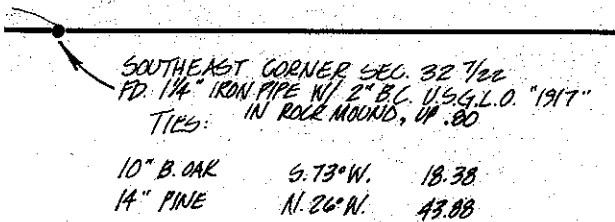 SOUTHEAST CORNER SEC. 32 7/22
FD. 1 1/4" IRON PIPE W/ 2" B.C. U.S.G.L.O. "1917"
IN ROCK MOUND, UP .80
TIES:
10" B. OAK S. 73° W. 18.38
14" PINE N. 26° W. 43.88